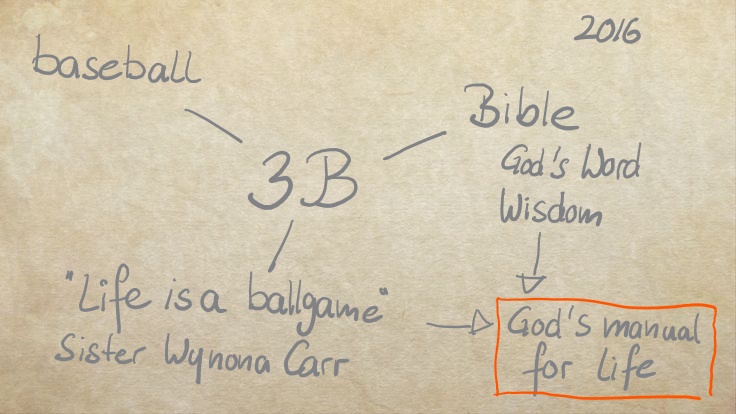 2016
baseball
Bible
God's Word
Wisdom
3B
"Life is a ballgame"
Sister Wynona Carr
God's manual
for Life